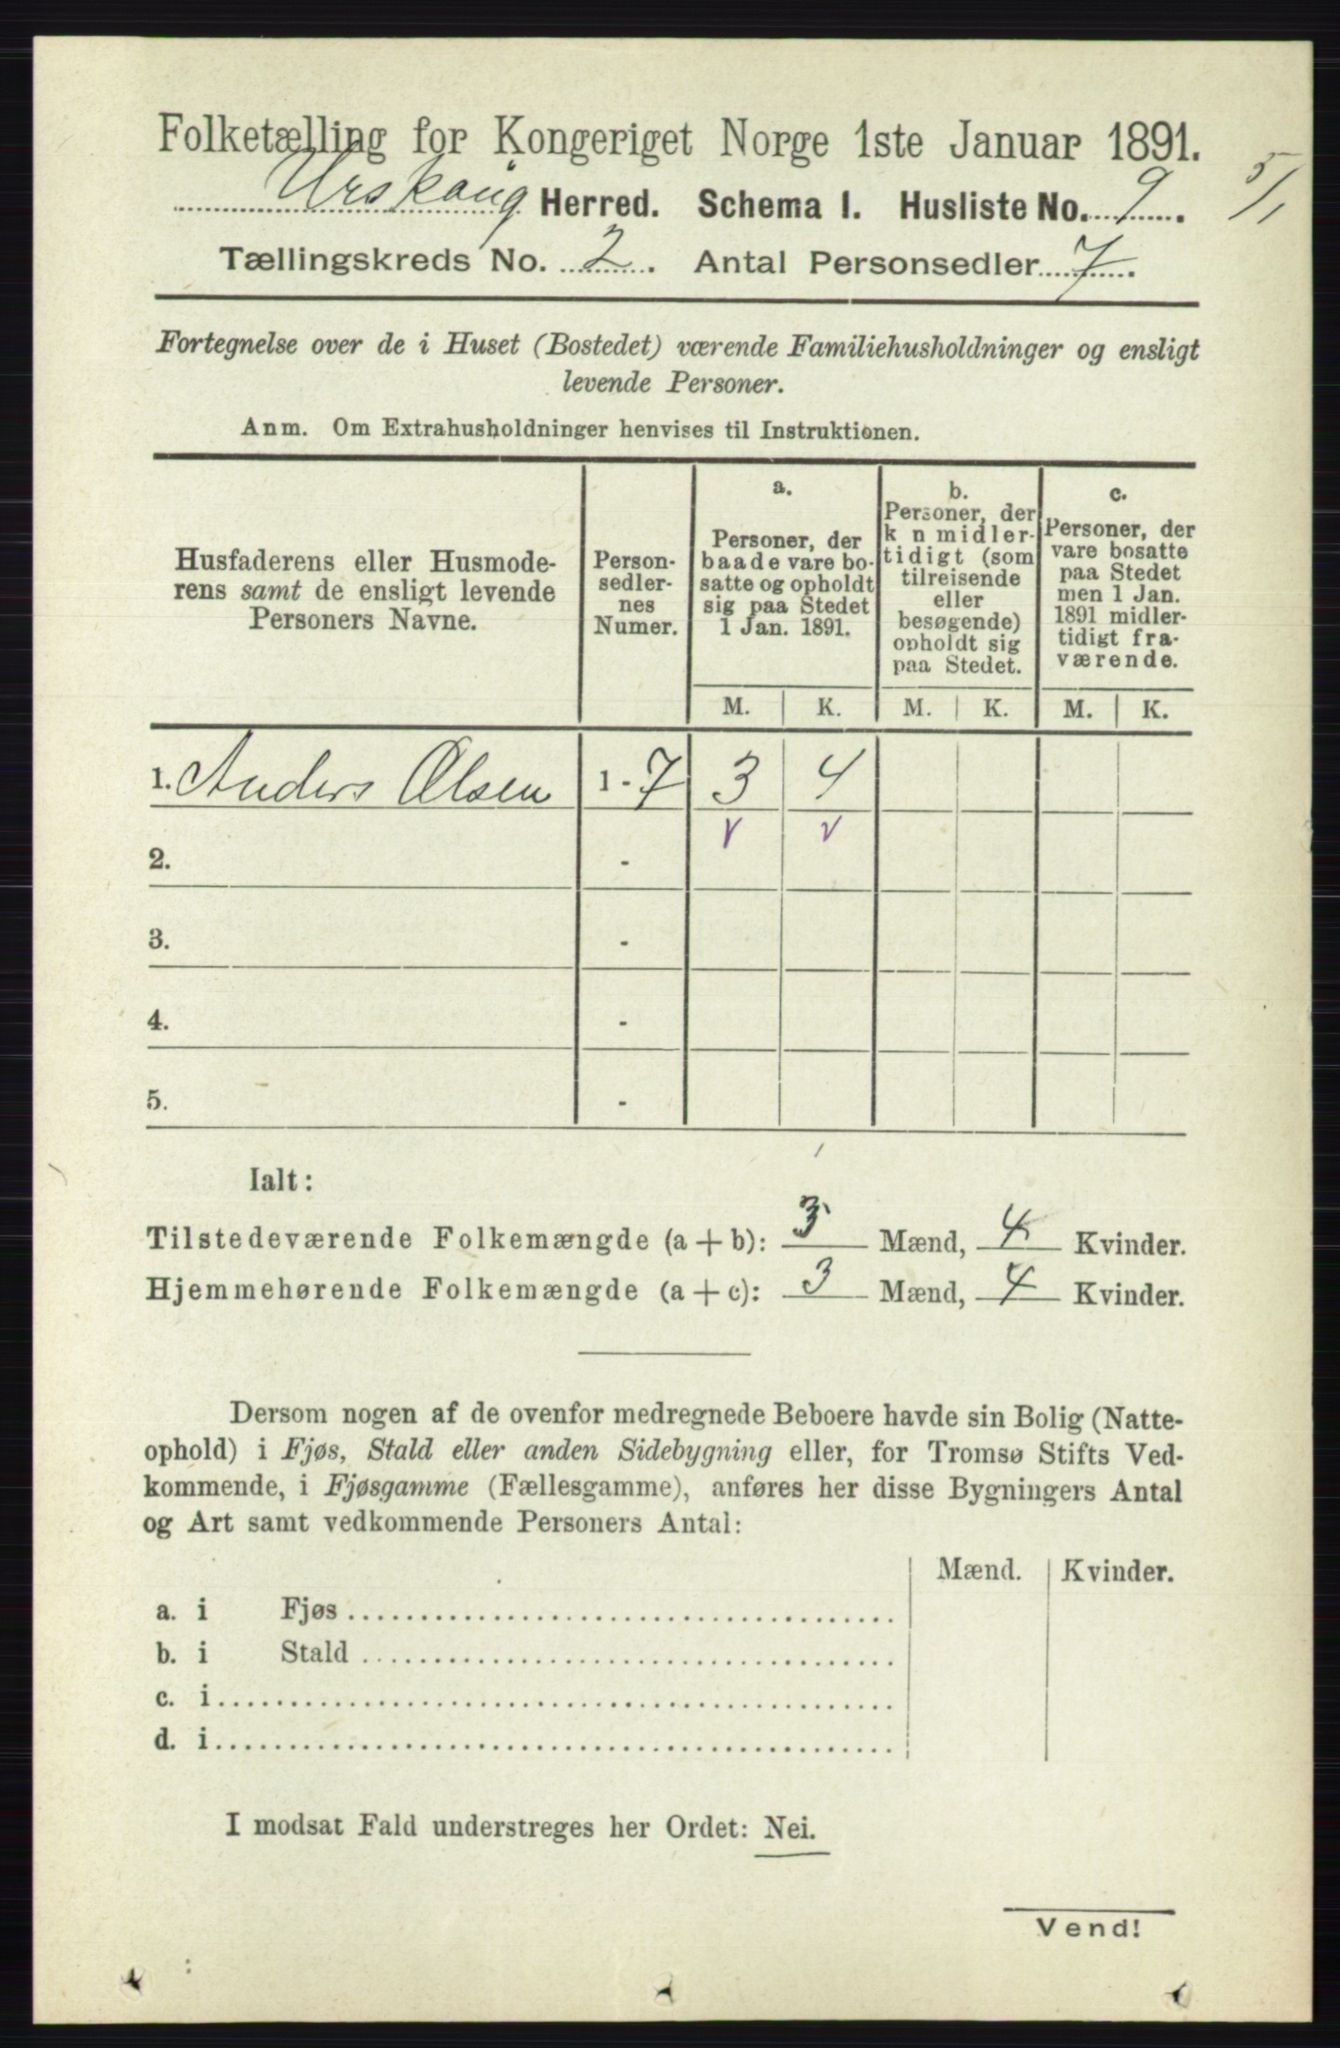 Folketælling for Kongeriget Norge 1ste Januar 1891.
Urskoug Herred. Schema I. Husliste No. 9. 5/1
Tællingskreds No. 2. Antal Personsedler 7.
Fortegnelse over de i Huset (Bostedet) værende Familiehusholdninger og ensligt
levende Personer.
Anm. Om Extrahusholdninger henvises til Instruktionen.
Husfaderens eller Husmode-
rens samt de ensligt levende
Personers Navne.
Person-
sedler-
nes
Numer.
a.
Personer, der
baade vare bo-
satte og opholdt
sig paa Stedet
1 Jan. 1891.
b.
Personer, der
k n midler-
tidigt (som
tilreisende
eller
besøgende)
opholdt sig
paa Stedet.
c.
Personer, der
vare bosatte
paa Stedet
men 1 Jan.
1891 midler-
tidigt fra-
værende.
M. K. M. K. M. K.
1. Anders Olsen 1 - 7 3 4
2. - v v
3. -
4. -
5. -
Ialt:
Tilstedeværende Folkemængde (a + b): 3 Mænd, 4 Kvinder.
Hjemmehørende Folkemængde (a + c): 3 Mænd, 4 Kvinder.
Dersom nogen af de ovenfor medregnede Beboere havde sin Bolig (Natte-
ophold) i Fjøs, Stald eller anden Sidebygning eller, for Tromsø Stifts Ved-
kommende, i Fjøsgamme (Fællesgamme), anføres her disse Bygningers Antal
og Art samt vedkommende Personers Antal:
Mænd. Kvinder.
a. i Fjøs
b. i Stald
c. i
d. i
I modsat Fald understreges her Ordet: Nei.
Vend!